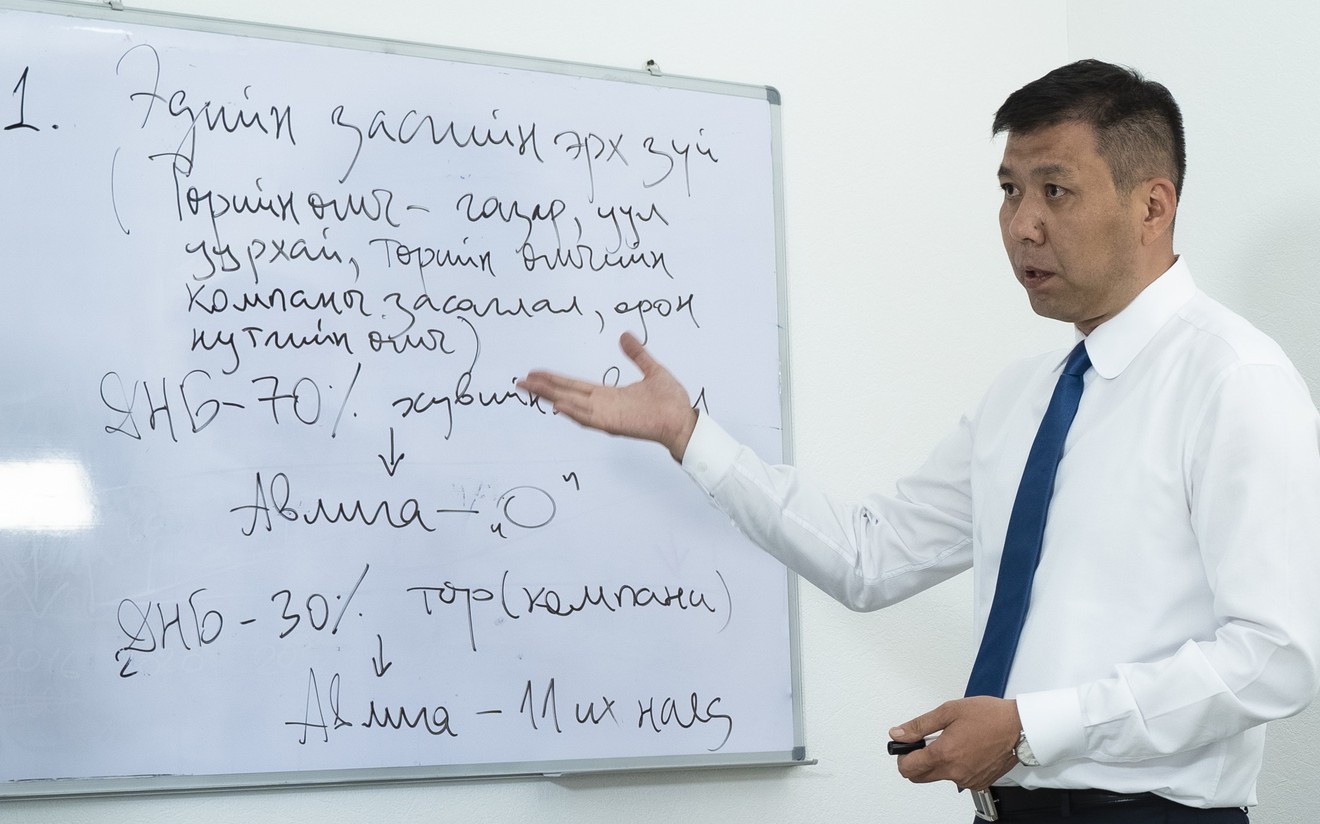 1. Эдийн засгийн эрх зүй
(Төрийн өмч - газар, уул
уурхай, төрийн өмчийн
компаны засаглал, орон
нутгийн өмч)
ДНБ - 70% хувийн
↓
Авлига - "0"
ДНБ - 30% төр (компани)
↓
Авлига - 11 их наяд